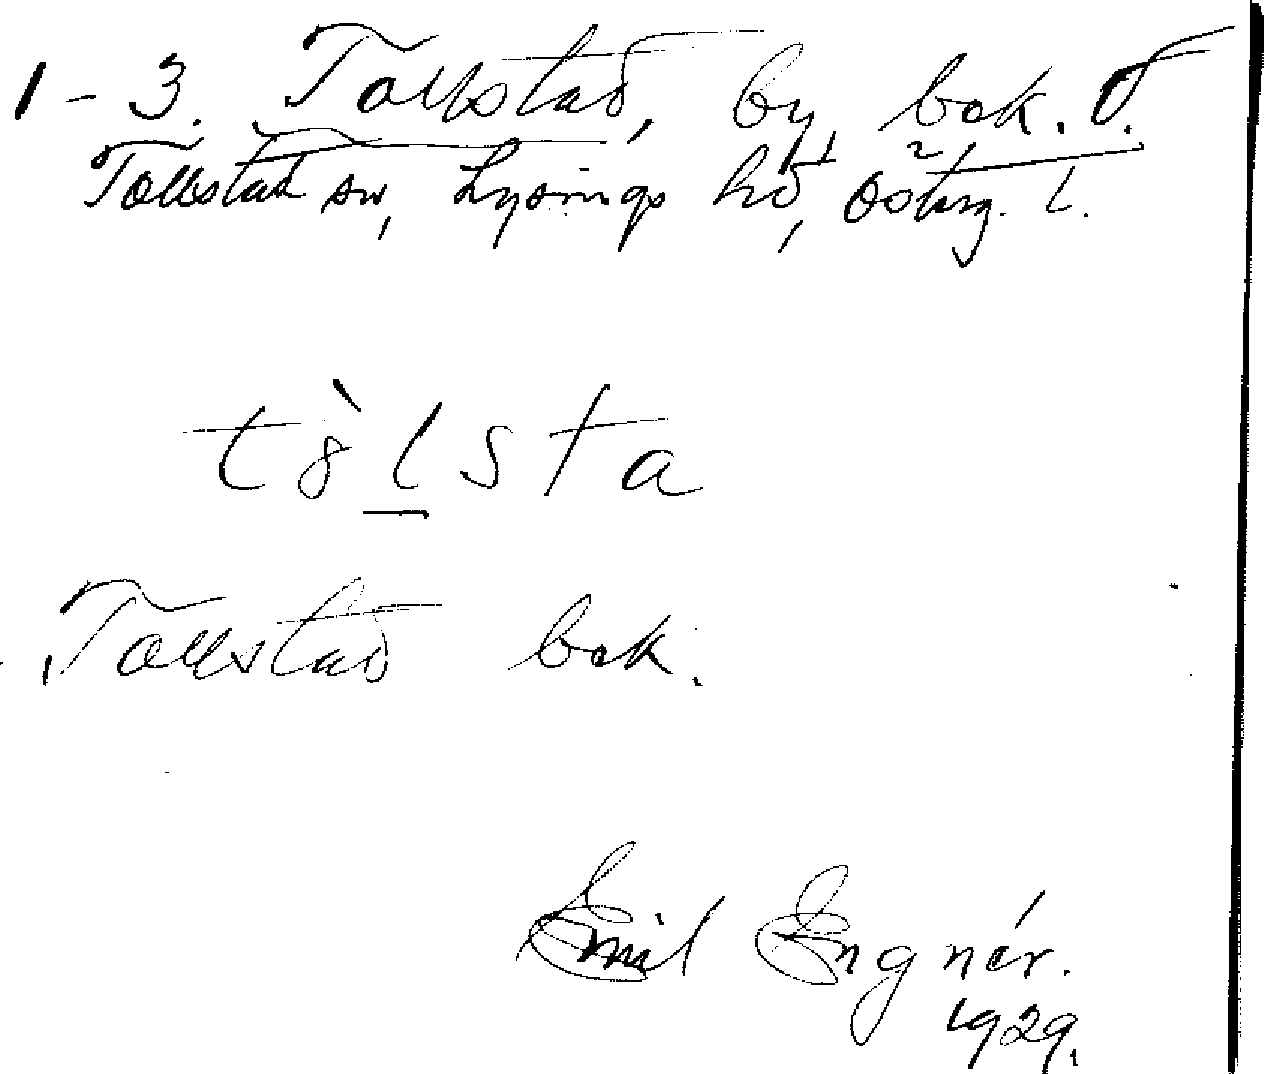 1-3. Tollstad, by, bok. O.
Tollstad sn, Lysings hd, Österg. l.
tòlsta
Tollstad bok.
Emil Engnér.
1929.